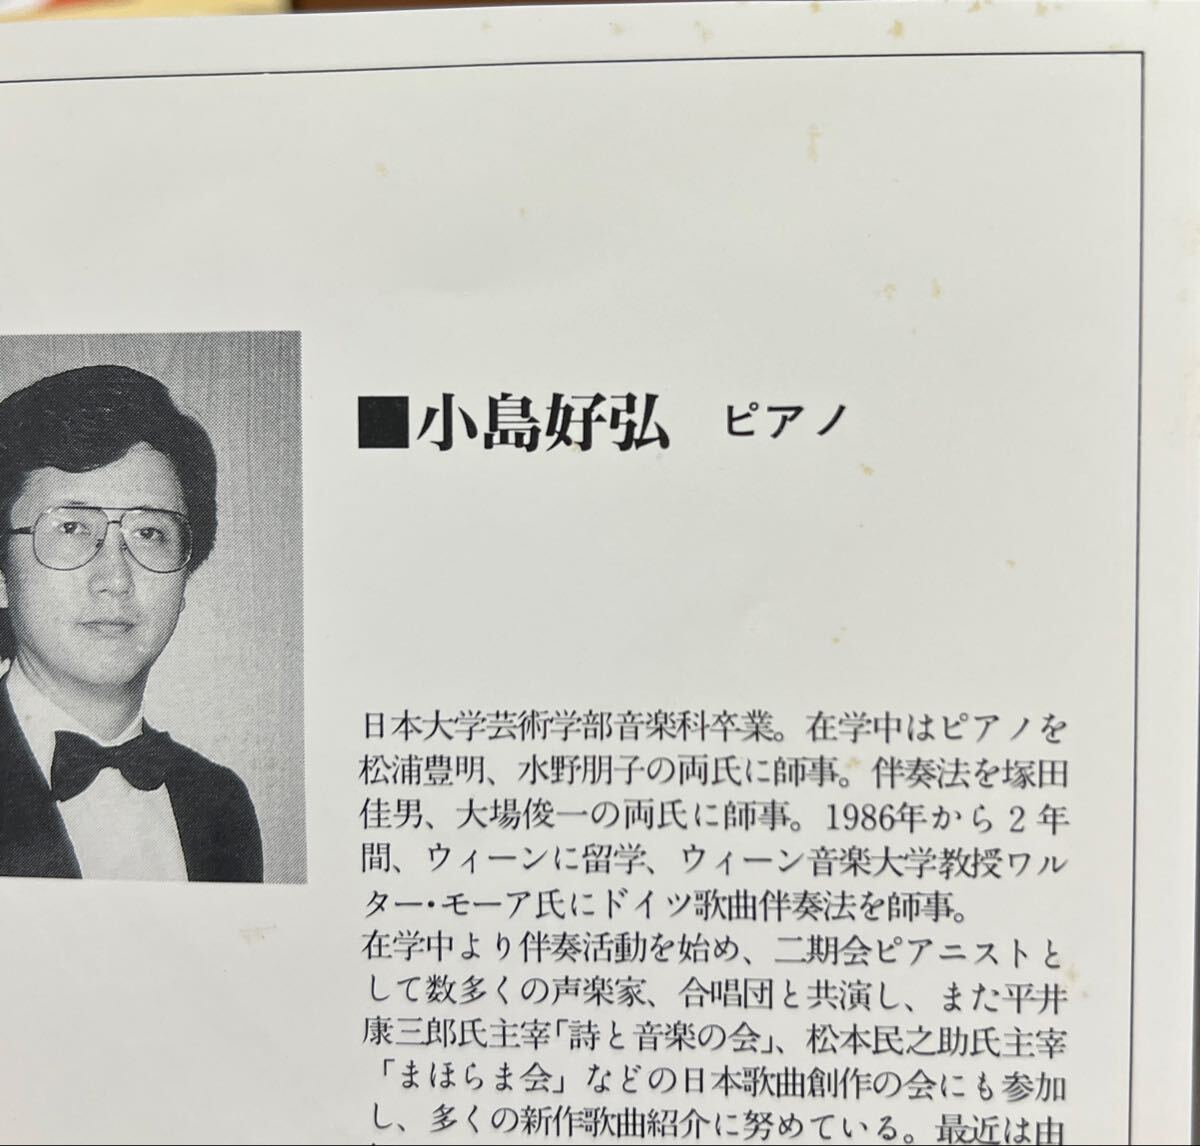 ■小島好弘 ピアノ
日本大学芸術学部音楽科卒業。在学中はピアノを
松浦豊明、水野朋子の両氏に師事。伴奏法を塚田
佳男、大場俊一の両氏に師事。1986年から2年
間、ウィーンに留学、ウィーン音楽大学教授ワル
ター・モーア氏にドイツ歌曲伴奏法を師事。
在学中より伴奏活動を始め、二期会ピアニストと
して数多くの声楽家、合唱団と共演し、また平井
康三郎氏主宰「詩と音楽の会」、松本民之助氏主宰
「まほらま会」などの日本歌曲創作の会にも参加
し、多くの新作歌曲紹介に努めている。最近は由